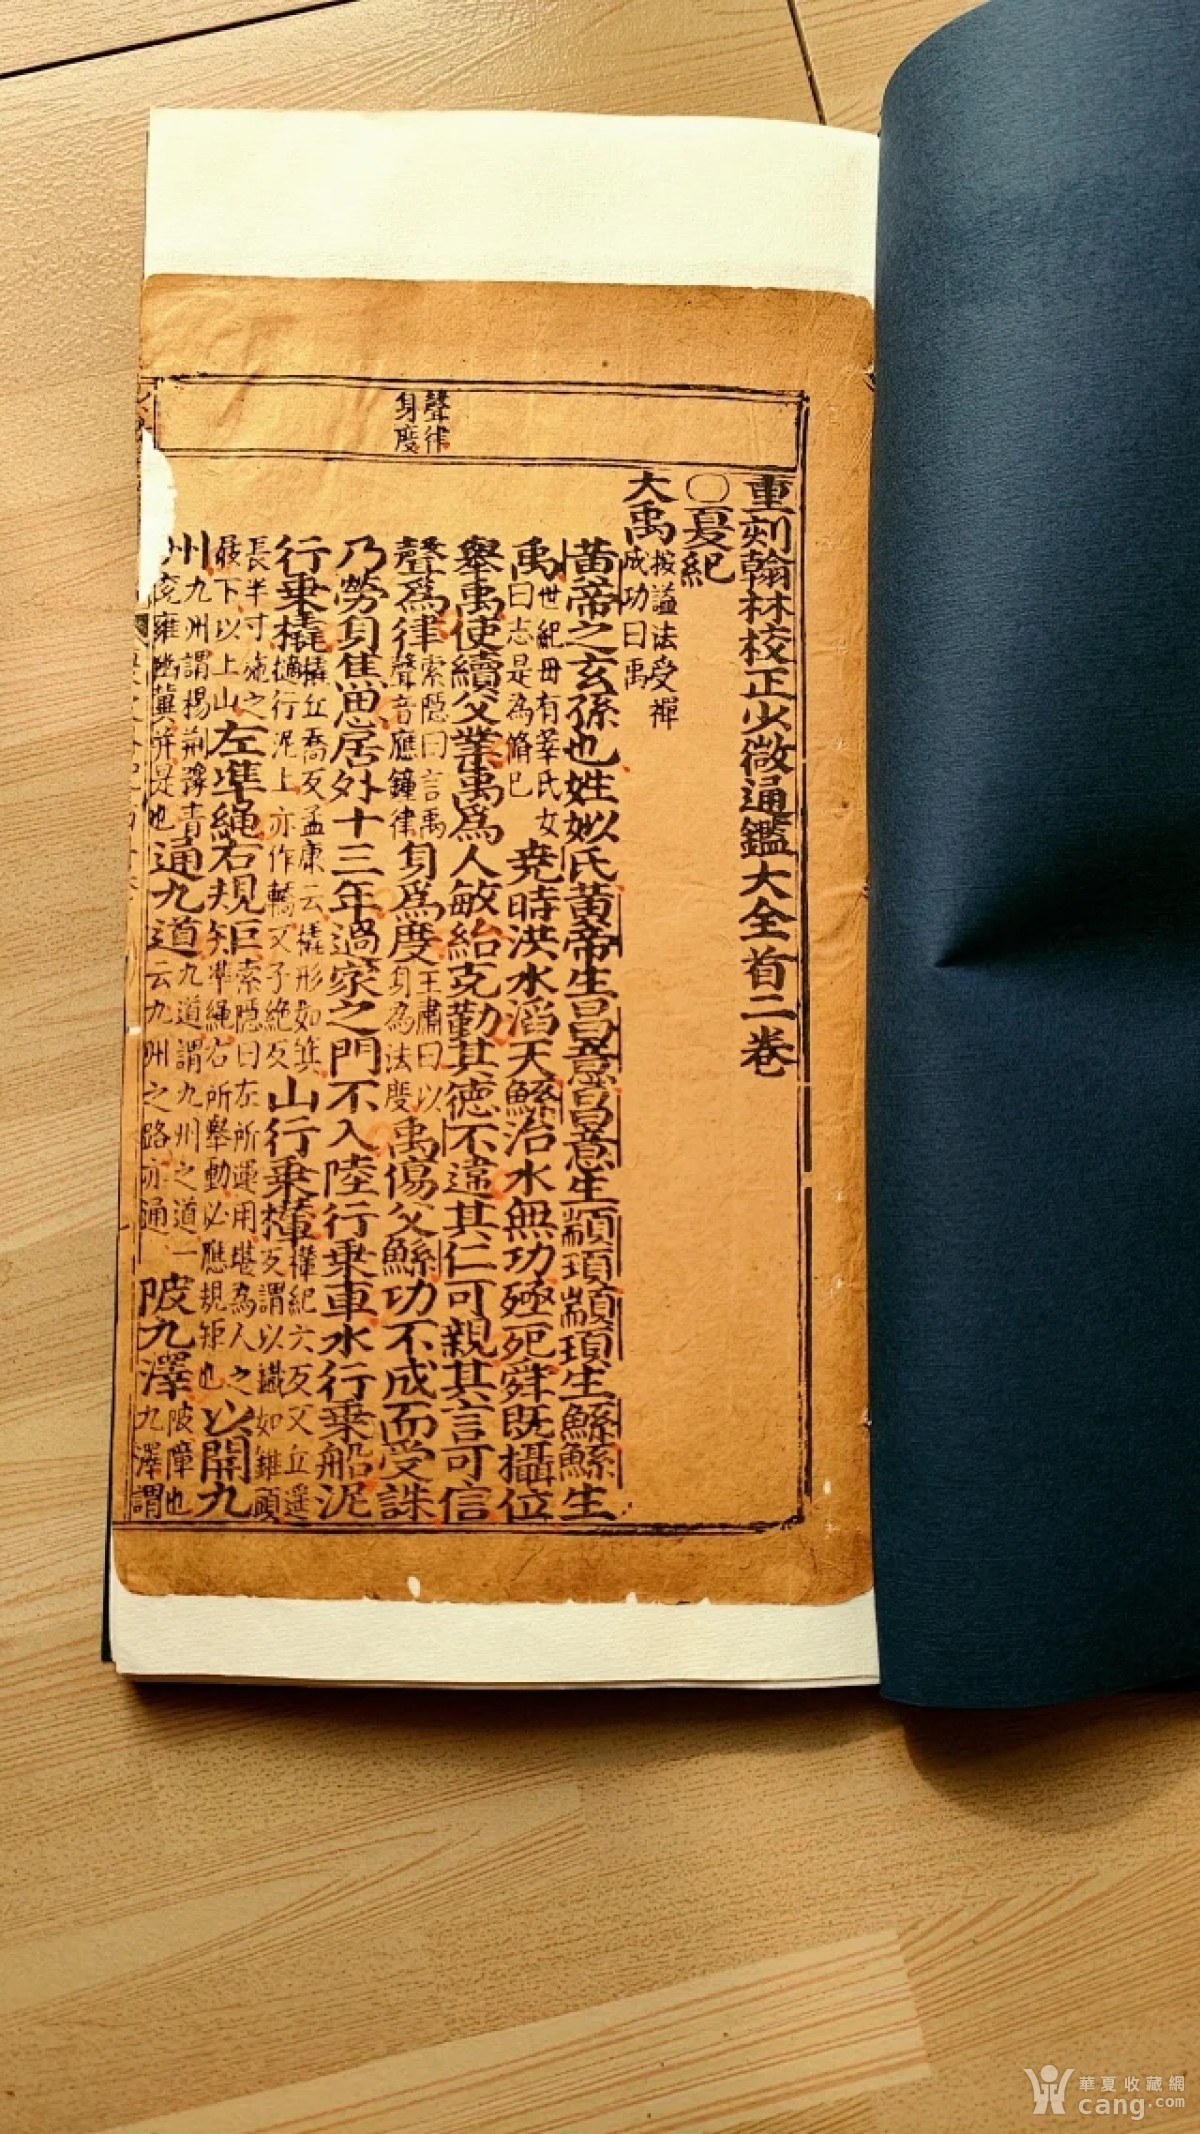 聲律
身度
重刻翰林校正少微通鑑大全首二卷
〇夏紀
大禹 按謚法受禪成功曰禹
黃帝之玄孫也姓姒氏黃帝生昌意昌意生顓頊顓頊生鯀鯀生
禹 世紀母有莘氏女曰志是為脩已 堯時洪水滔天鯀治水無功殛死舜既攝位
舉禹使續父業禹爲人敏給克勤其德不違其仁可親其言可信
聲爲律 索隱曰言禹聲音應鐘律 身爲度 王肅曰以身為法度 禹傷父鯀功不成而受誅
乃勞身焦思居外十三年過家之門不入陸行乘車水行乘船泥
行乘橇 橇丘喬反孟康云橇形如箕擿行泥上亦作轎又子絶反 山行乘檋 檋紀六反又丘遥反謂以鐵如錐頭
長半寸施之屐下以上山 左準繩右規矩 索隱曰左所運用堪為人之準繩右所舉動必應規矩也 以開九
州 九州謂楊荊豫青 兗雍幽冀并是也 通九道 九道謂九州之道一云九州之路亦通 陂九澤 陂障也九澤謂
華夏收藏網
cang.com